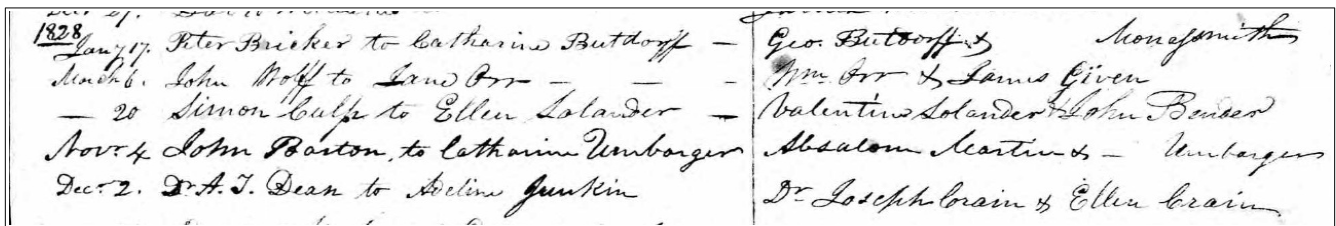 1828
Jany 17. Peter Bricker to Catharine Butdorff — Geo. Butdorff & Monasmith
March 6. John Wolff to Jane Orr — — — Wm Orr & James Given
— 20 Simon Culp to Ellen Solander — Valentine Solander & John Bender
Novr. 4 John Barton, to Catharine Umbarger Absalom Martin & — Umbargers
Decr. 2. Dr A. T. Dean to Adeline Junkin Dr Joseph Crain & Ellen Crain